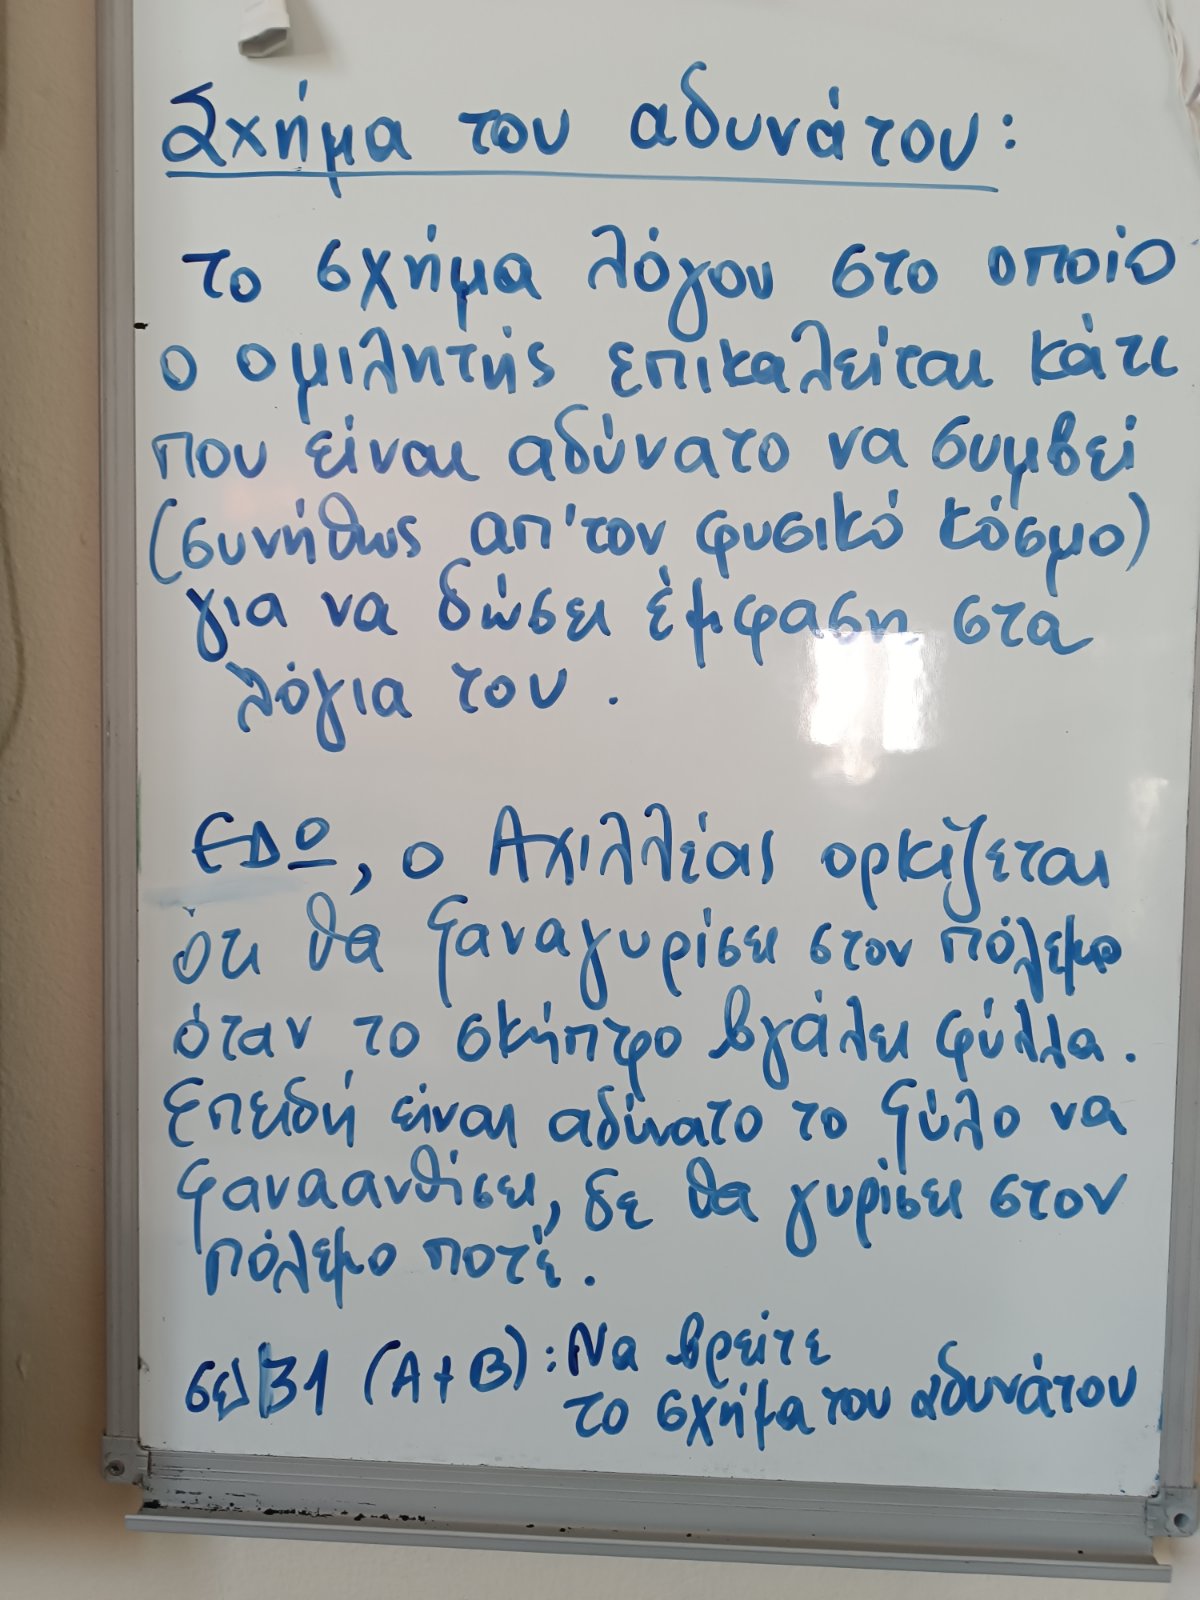 Σχήμα του αδυνάτου:
το σχήμα λόγου στο οποίο
ο ομιλητής επικαλείται κάτι
που είναι αδύνατο να συμβεί
(συνήθως απ'τον φυσικό κόσμο)
για να δώσει έμφαση στα
λόγια του.
ΕΔΩ, ο Αχιλλέας ορκίζεται
ότι θα ξαναγυρίσει στον πόλεμο
όταν το σκήπτρο βγάλει φύλλα.
Επειδή είναι αδύνατο το ξύλο να
ξαναανθίσει, δε θα γυρίσει στον
πόλεμο ποτέ.
σελ 31 (Α+Β): Να βρείτε
το σχήμα του αδυνάτου